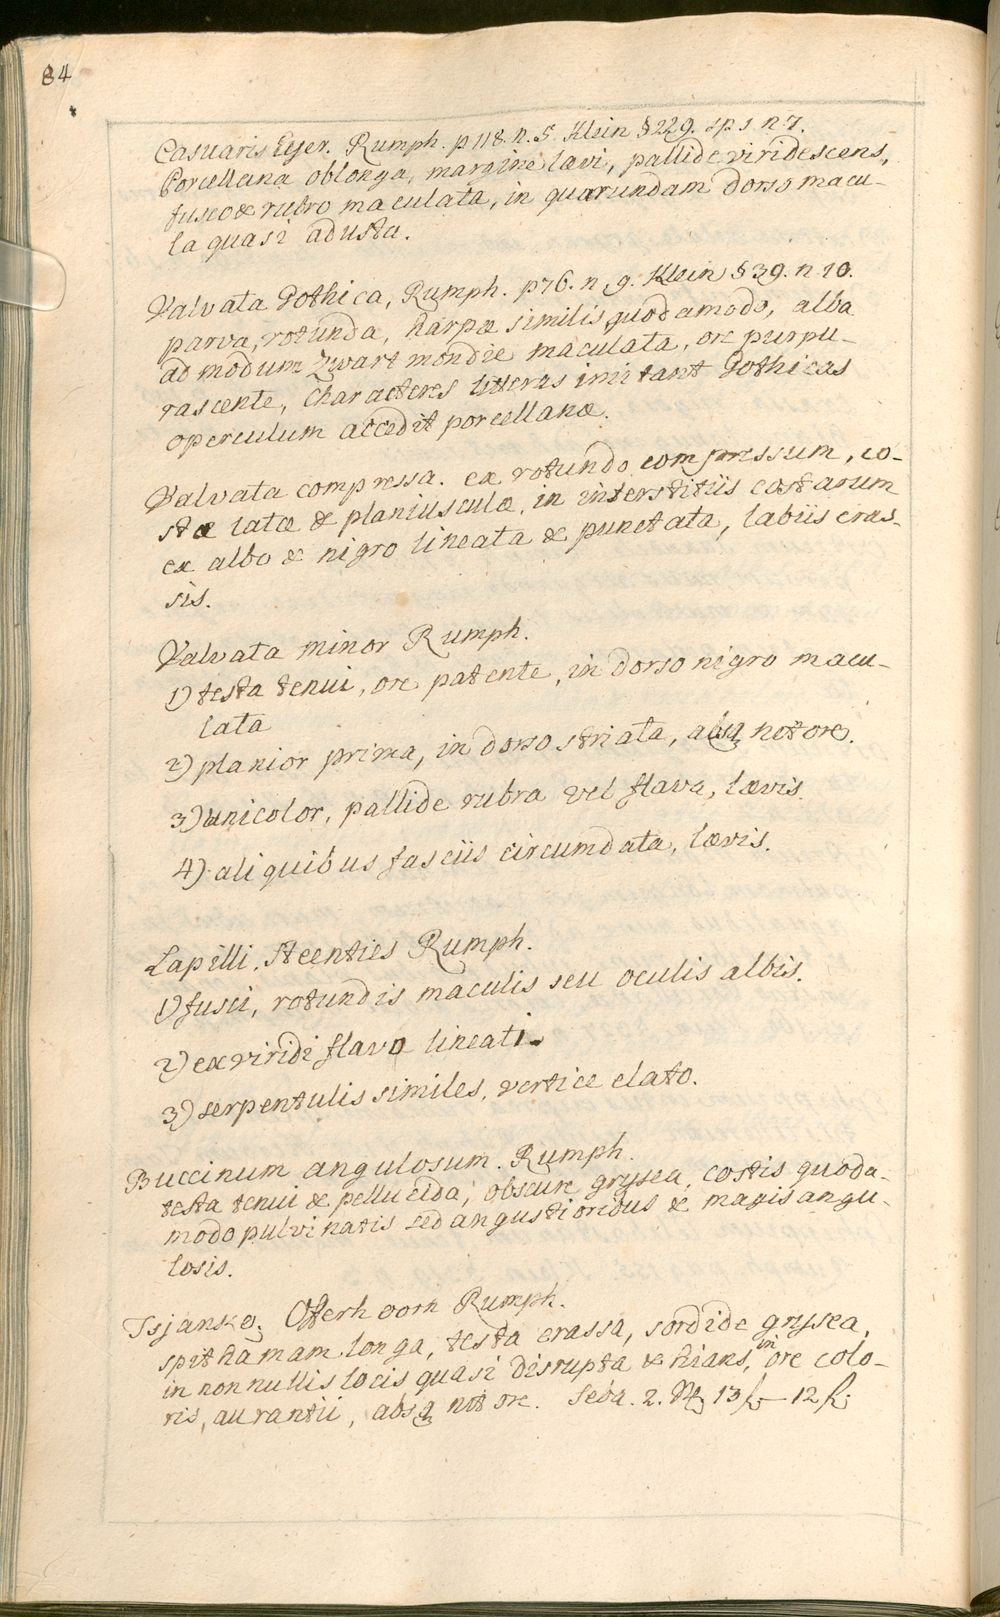 84
Casuaris Eyer. Rumph. p 118. n. 5. Klein § 229. sp 1 n 7.
Porcellana oblonga, margine lævi, pallide viridescens,
fusco & rubro maculata, in quarundam dorso macu-
la quasi adusta.
Valvata Gothica, Rumph. p 76. n. 9. Klein § 39. n 10.
parva, rotunda, harpæ similis quodamodo, alba
ad modum Zwart mondie maculata, ore purpu-
rascente, Characteres litteras imitant Gothicas
operculum accedit porcellanæ.
Valvata compressa. ex rotundo compressum, co-
stæ latæ & planiusculæ, in interstitiis costarum
ex albo & nigro lineata & punctata, labiis cras-
sis.
Valvata minor Rumph.
1) testa tenui, ore patente, in dorso nigro macu-
lata
2) planior prima, in dorso striata, absq notore.
3) unicolor, pallide rubra vel flava, lævis.
4) aliquibus fasciis circumdata, lævis.
Lapilli. Steenties Rumph.
1) fusci, rotundis maculis seu oculis albis.
2) ex viridi flavo lineati.
3) serpentulis similes, vertice elato.
Buccinum angulosum. Rumph.
testa tenui & pellucida, obscure grysea, costis quoda-
modo pulvinatis sed angustioribus & magis angu-
losis.
Tsjanko, Offerhoorn Rumph.
spithamam longa, testa crassa, sordide grysea,
in nonnullis locis quasi disrupta & hians, in ore colo-
ris, aurantii, absq notore. Seba. 2.